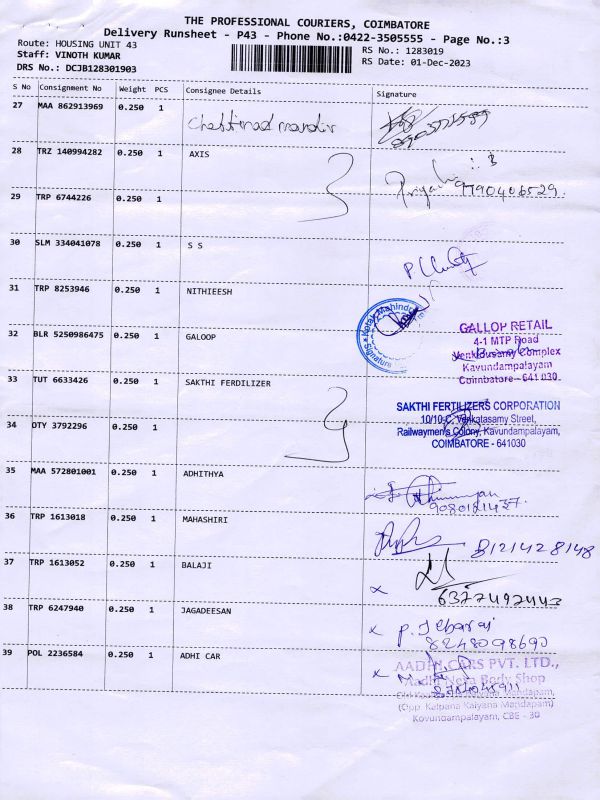 THE PROFESSIONAL COURIERS, COIMBATORE
Delivery Runsheet - P43 - Phone No.:0422-3505555 - Page No.:3
Route: HOUSING UNIT 43
RS No.: 1283019
Staff: VINOTH KUMAR
RS Date: 01-Dec-2023
DRS No.: DCJB128301903
S No Consignment No Weight PCS Consignee Details Signature
27 MAA 862913969 0.250 1 Chettinad mandir
28 TRZ 140994282 0.250 1 AXIS
9790406529.
29 TRP 6744226 0.250 1
30 SLM 334041078 0.250 1 S S
31 TRP 8253946 0.250 1 NITHIEESH
Kotak Mahindra
Signature
32 BLR 5250986475 0.250 1 GALOOP
GALLOP RETAIL
4-1 MTP Road
Venkidusamy Complex
Kavundampalayam
Coimbatore- 641 030
33 TUT 6633426 0.250 1 SAKTHI FERDILIZER
SAKTHI FERTILIZERS CORPORATION
10/10-C, Venkatasamy Street,
Railwaymen's Colony, Kavundampalayam,
COIMBATORE - 641030
34 OTY 3792296 0.250 1
35 MAA 572801001 0.250 1 ADHITHYA
36 TRP 1613018 0.250 1 MAHASHIRI
8121428148
37 TRP 1613052 0.250 1 BALAJI
x
38 TRP 6247940 0.250 1 JAGADEESAN
x P. Jebaraj
8248098690
39 POL 2236584 0.250 1 ADHI CAR
x
AADHI CARS PVT. LTD.,
Body Shop
(Opp. Kalpana Kalyana Mandapam)
Kovundampalayam, CBE - 30